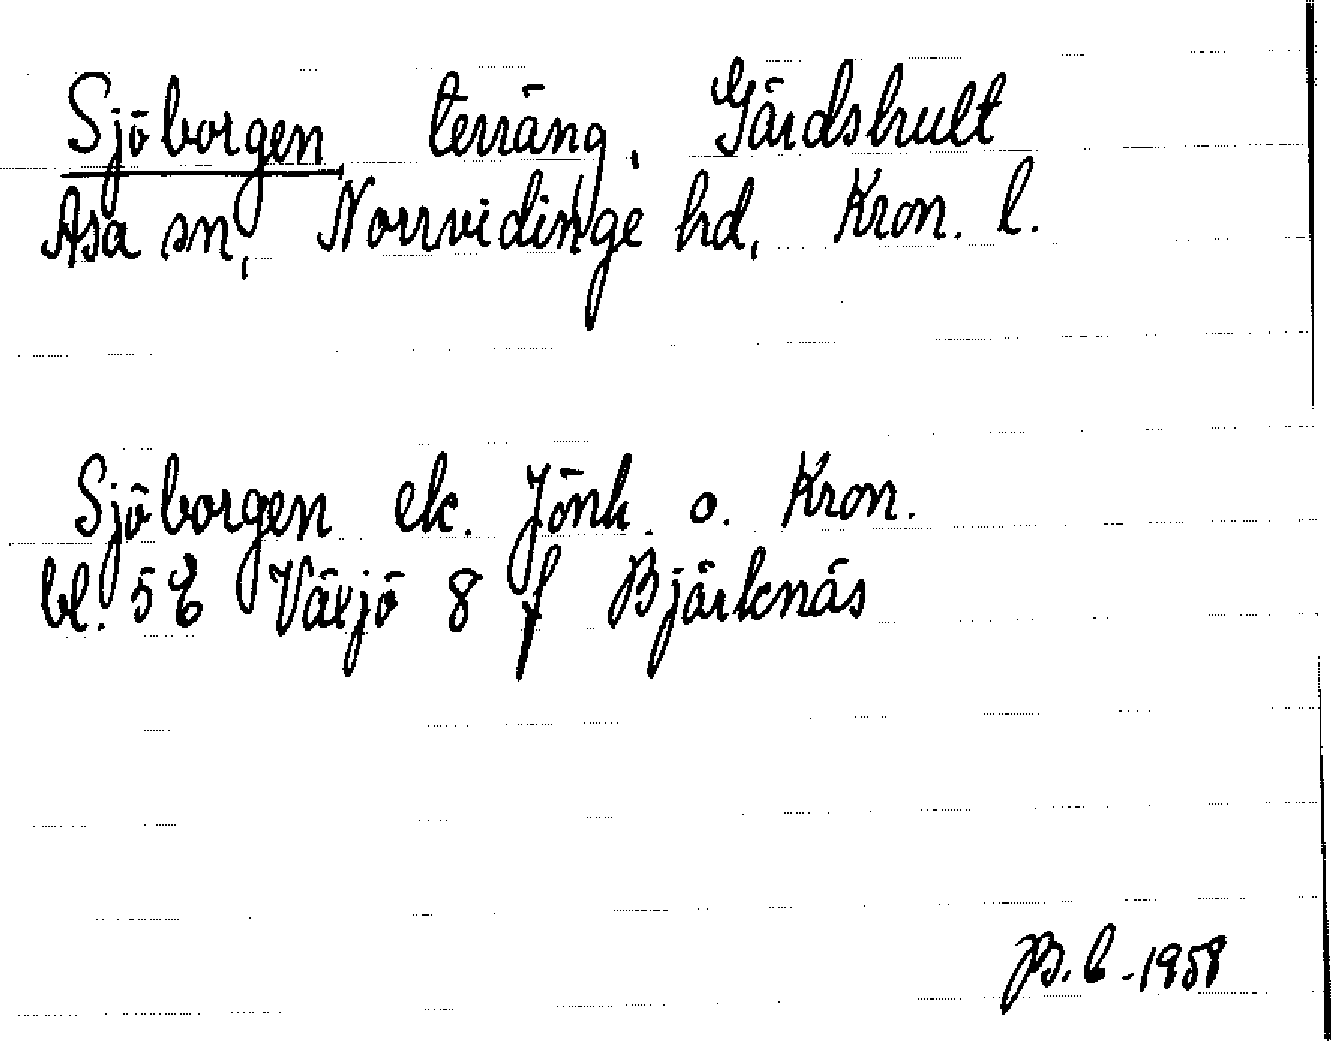 Sjöborgen terräng, Gårdshult
Asa sn, Norrvidinge hd, Kron. l.
Sjöborgen ek. Jönk. o. Kron.
bl. 5 E Växjö 8 f Björknäs
B. b. 1958